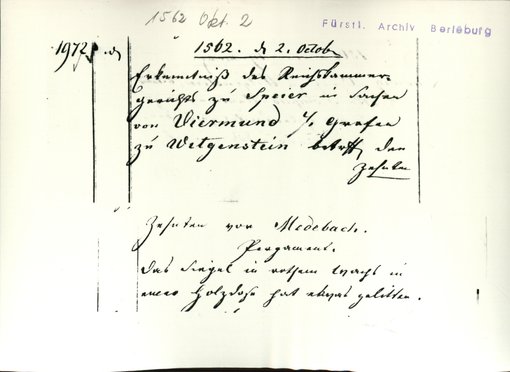 1562 Okt. 2
Fürstl. Archiv Berleburg
1972
1562. d 2. Octob
Erkenntniß des Reichskammer-
gerichts zu Speier in Sachen
von Viermund c/a Grafen
zu Witgenstein betreff. den
Zehnten
Zehnten von Medebach.
Pergament.
das Siegel in rothem Wachs in
einer Holzdose hat etwas gelitten.